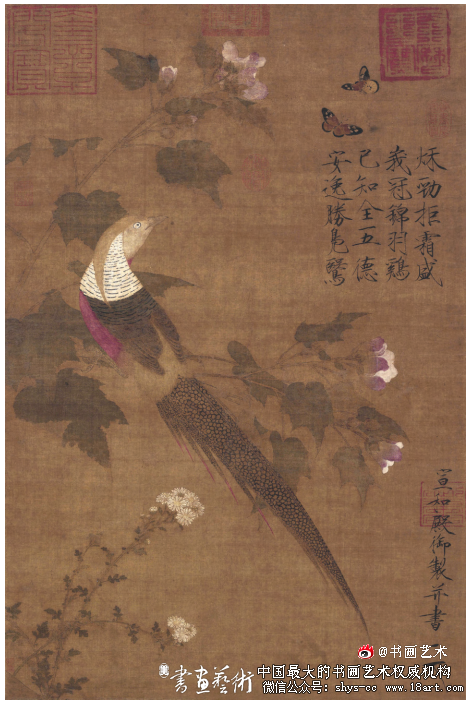 秌勁拒霜盛
峩冠錦羽鷄
已知全五德
安逸勝鳬鷖
宣和殿御製并書
@书画艺术
書畫藝術
中国最大的书画艺术权威机构
微信公众号: shys-cc www.18art.com